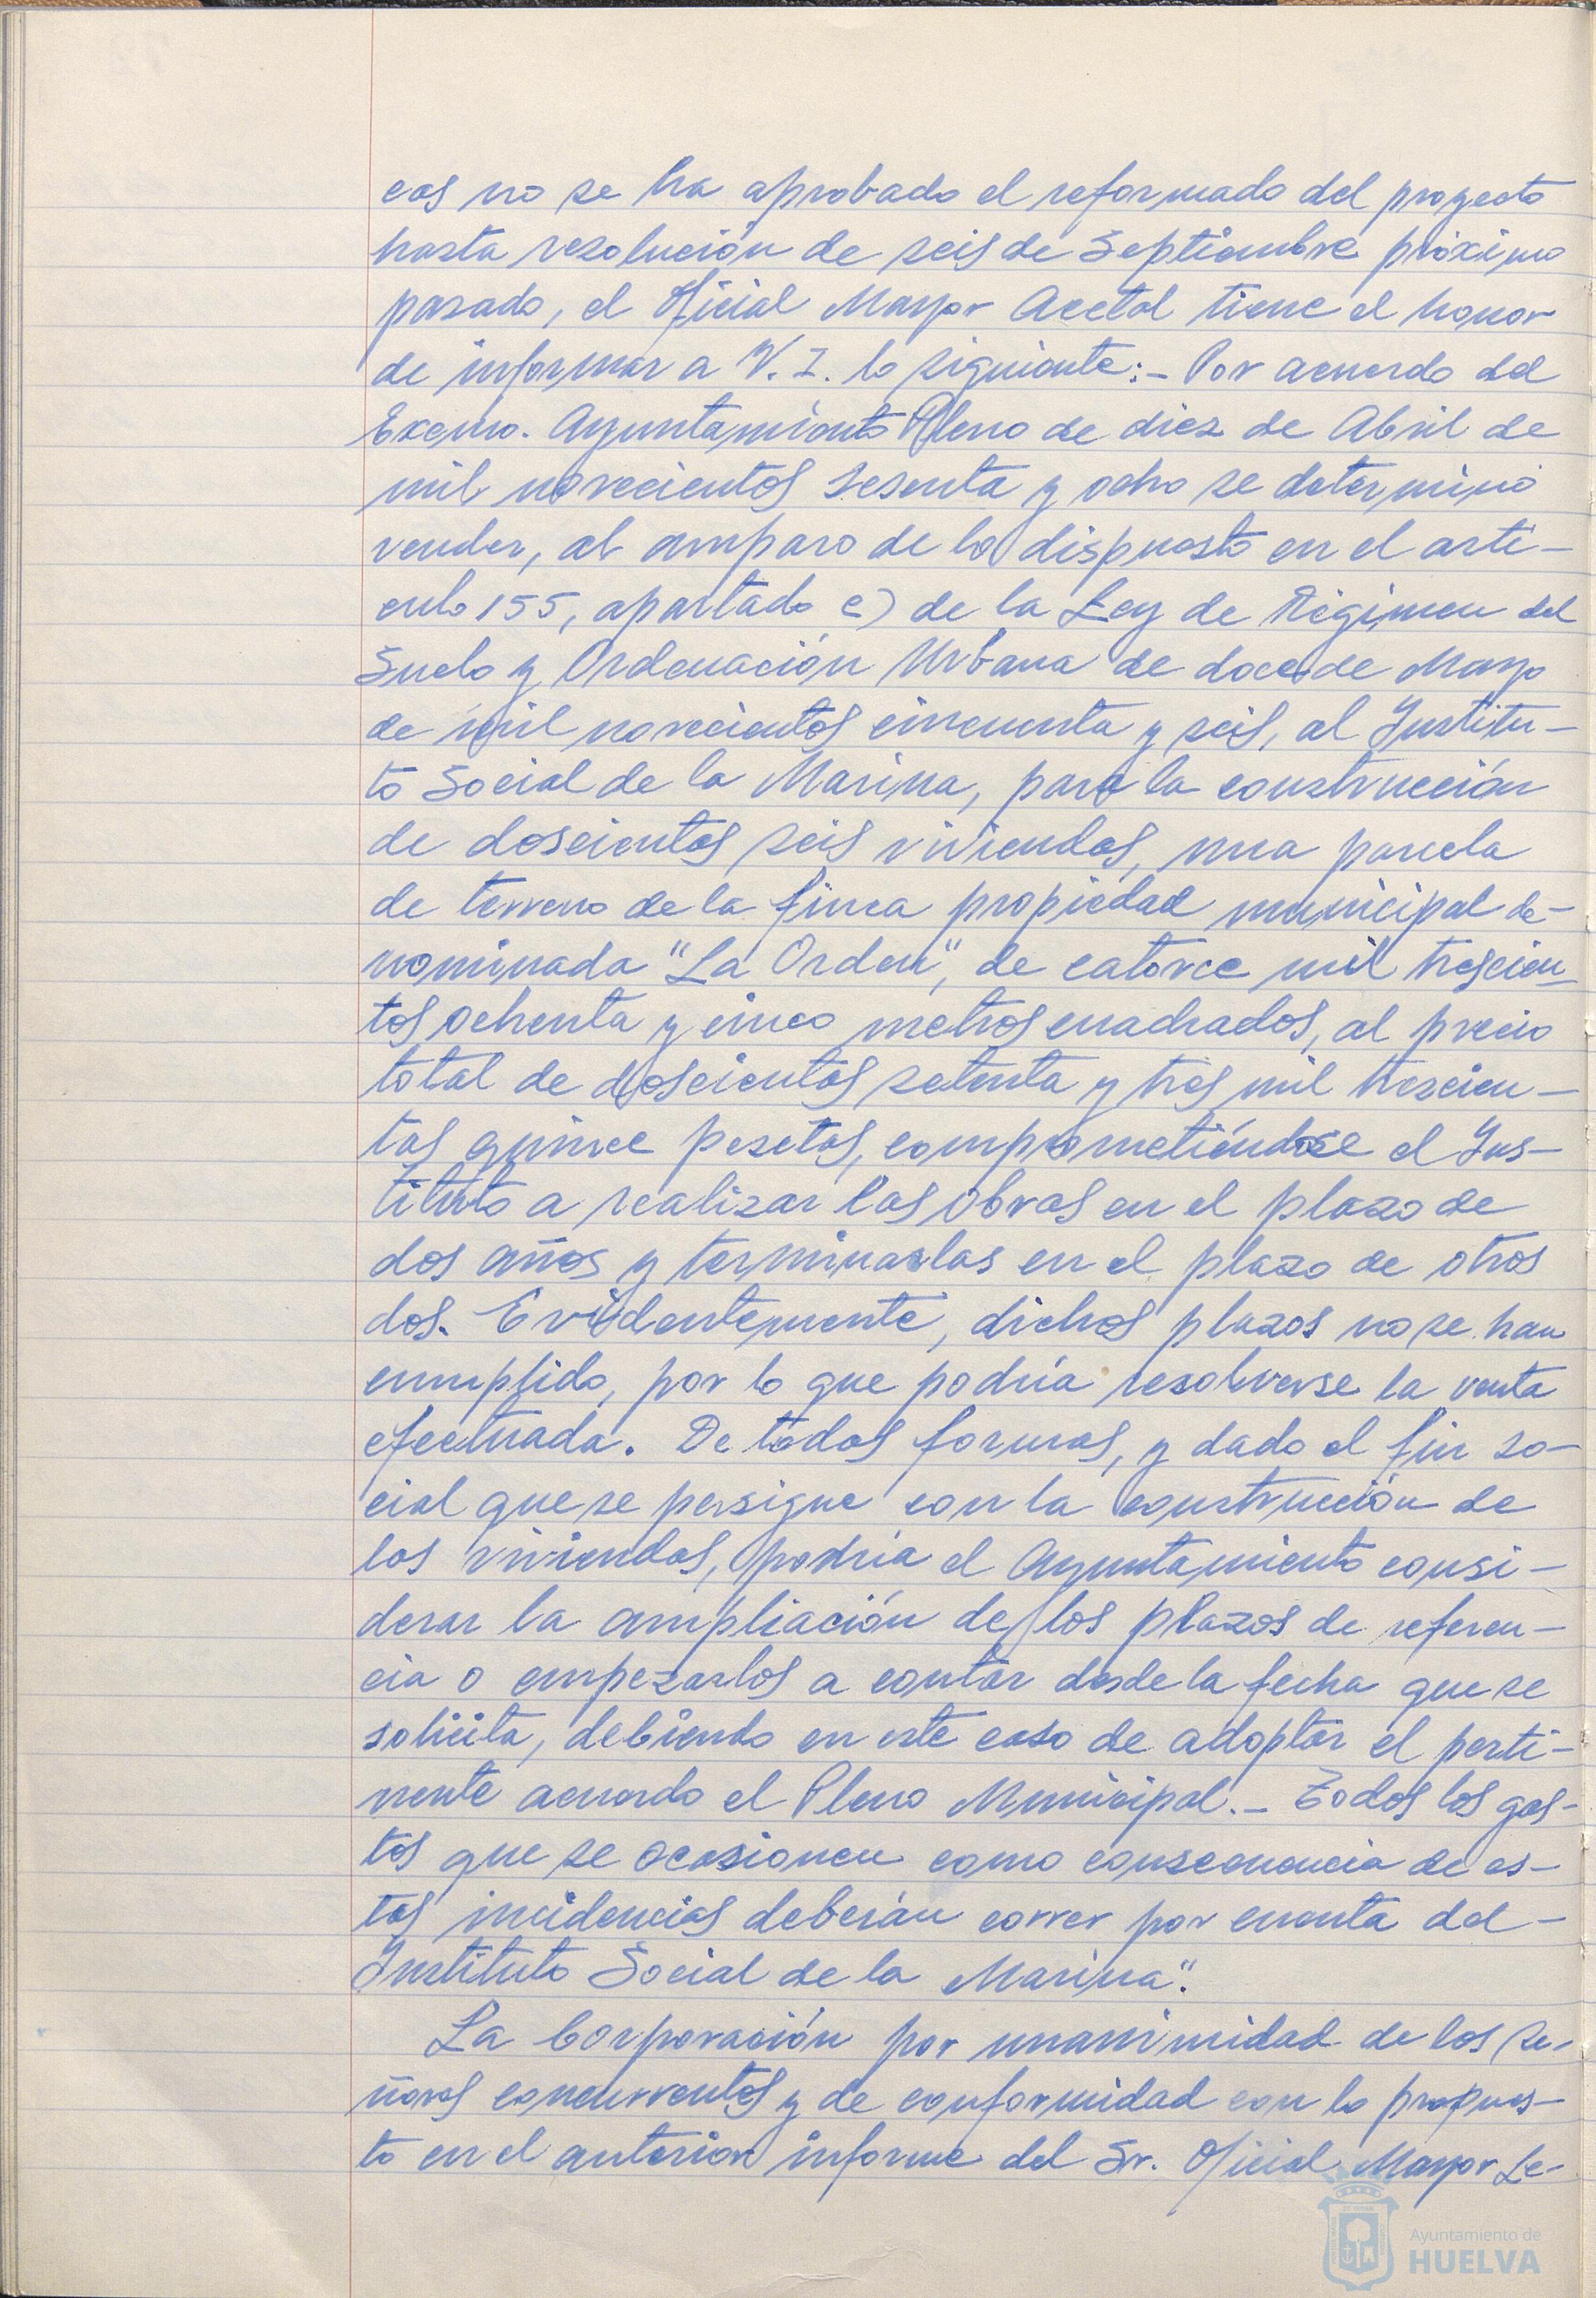 cas no se ha aprobado el reformado del proyecto
hasta resolución de seis de Septiembre próximo
pasado, el Oficial Mayor Acctal tiene el honor
de informar a V. I. lo siguiente:- Por acuerdo del
Excmo. Ayuntamiento Pleno de diez de Abril de
mil novecientos sesenta y ocho se determinó
vender, al amparo de lo dispuesto en el artí-
culo 155, apartado c) de la Ley de Régimen del
Suelo y Ordenación Urbana de doce de Mayo
de mil novecientos cincuenta y seis, al Institu-
to Social de la Marina, para la construcción
de doscientas seis viviendas, una parcela
de terreno de la finca propiedad municipal de-
nominada "La Orden", de catorce mil trescien-
tos ochenta y cinco metros cuadrados, al precio
total de doscientas setenta y tres mil trescien-
tas quince pesetas, comprometiéndose el Ins-
tituto a realizar las obras en el plazo de
dos años y terminarlas en el plazo de otros
dos. Evidentemente, dichos plazos no se han
cumplido, por lo que podría resolverse la venta
efectuada. De todas formas, y dado el fin so-
cial que se persigue con la construcción de
las viviendas, podría el Ayuntamiento consi-
derar la ampliación de los plazos de referen-
cia o empezarlos a contar desde la fecha que se
solicita, debiendo en este caso de adoptar el perti-
nente acuerdo el Pleno Municipal.- Todos los gas-
tos que se ocasionen como consecuencia de es-
tas incidencias deberán correr por cuenta del-
Instituto Social de la Marina".
La Corporación por unanimidad de los se-
ñores concurrentes y de conformidad con lo propues-
to en el anterior informe del Sr. Oficial Mayor Le-
Ayuntamiento de
HUELVA